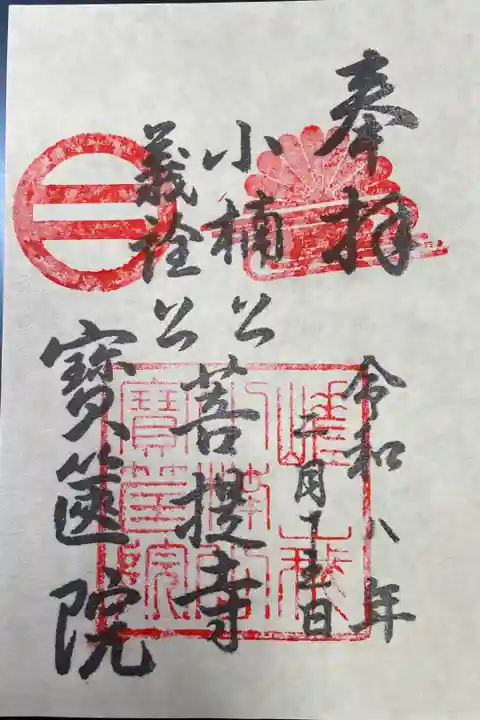 奉拝
令和八年
二月十五日
小楠公
義詮公
菩提寺
寶篋院